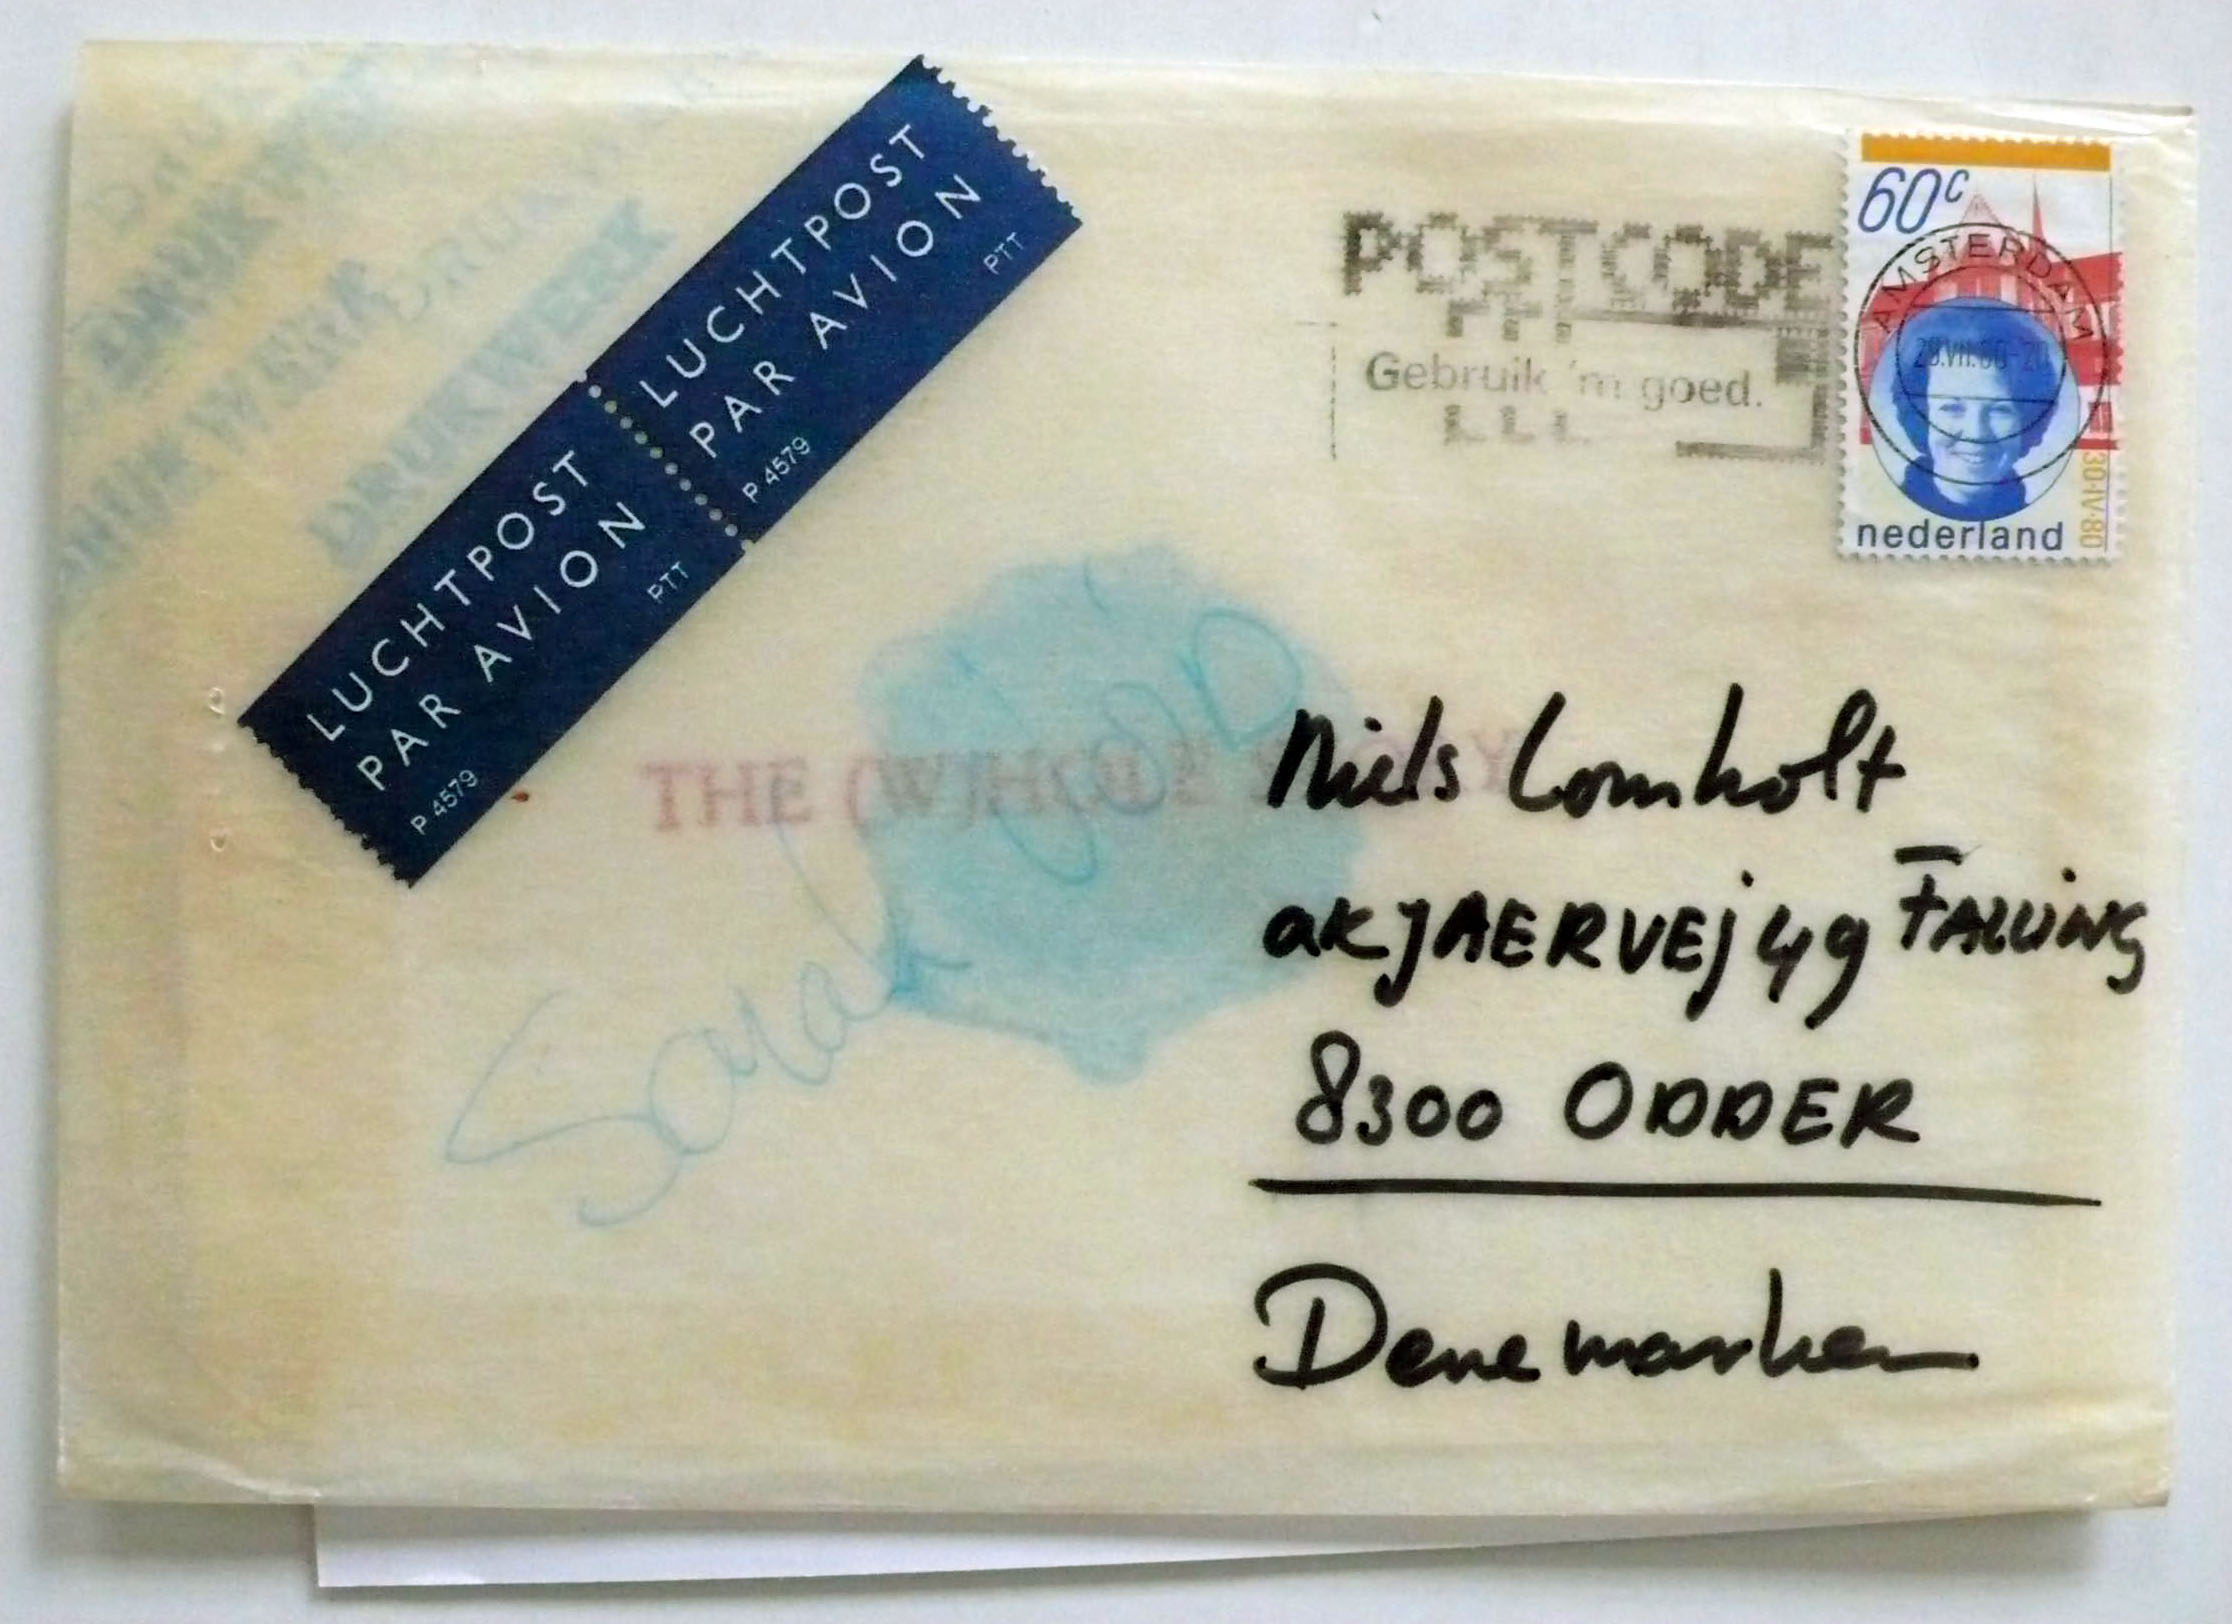 DRUKWERK
DRUKWERK
DRUKWERK
LUCHTPOST
PAR AVION
PTT
P 4579
LUCHTPOST
PAR AVION
PTT
P 4579
POSTCODE
Gebruik 'm goed.
60c
AMSTERDAM
nederland
30·IV·80
THE (W)HOLE
Sarah
Niels Lomholt
akJAERVEJ 49 FALLING
8300 ODDER
Denemarken